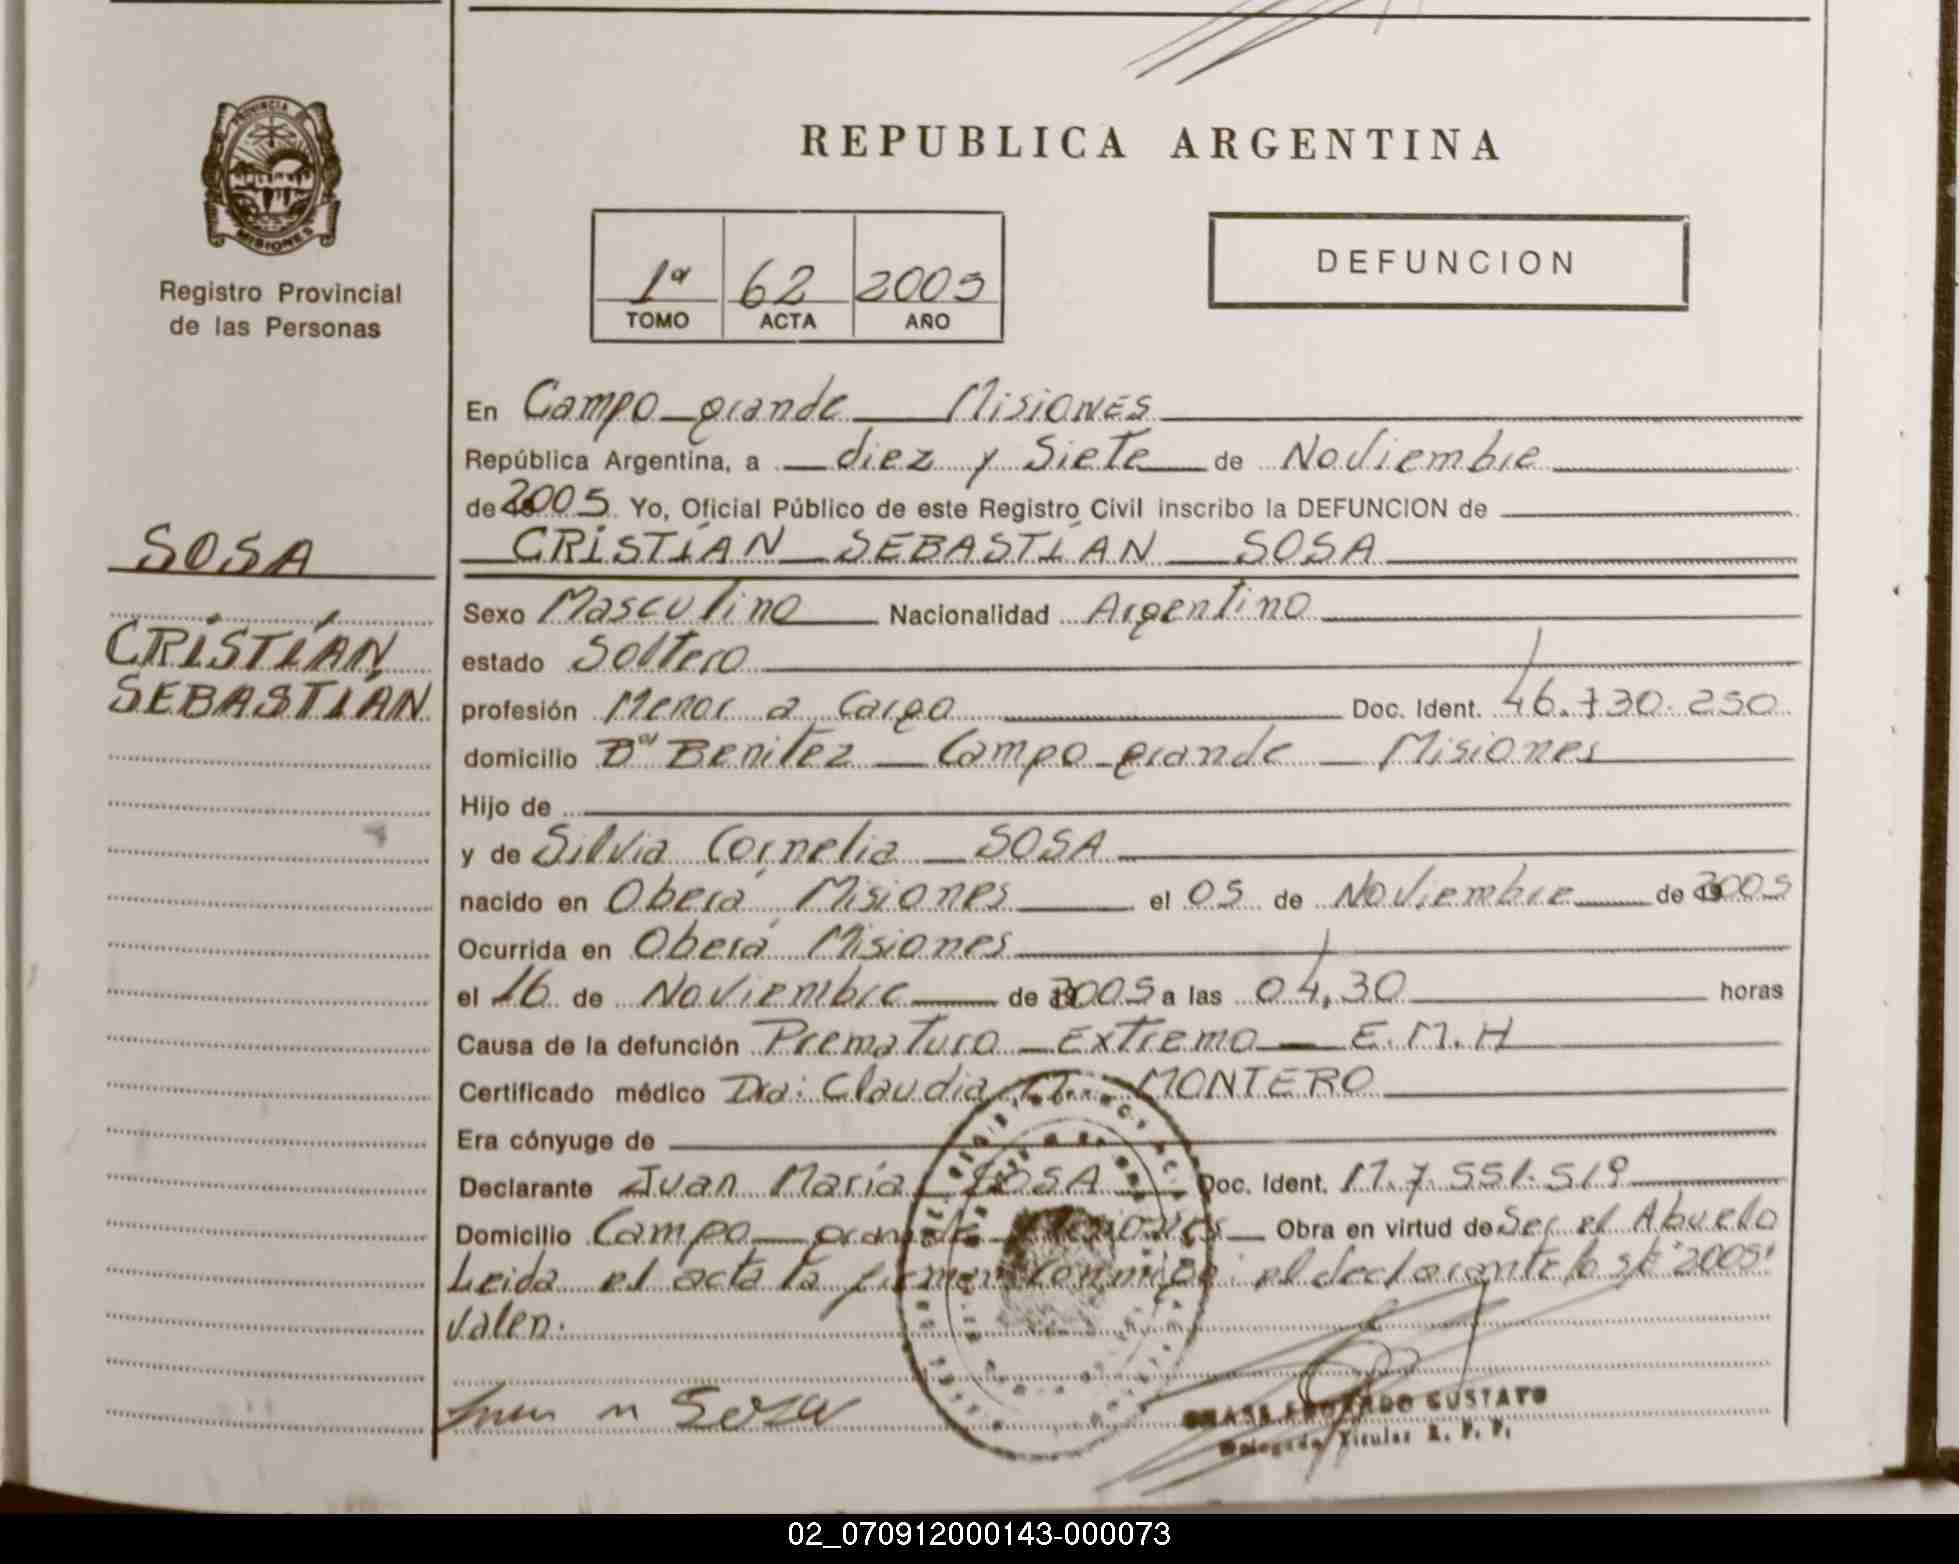 PROVINCIA DE
MISIONES
Registro Provincial
de las Personas
REPUBLICA ARGENTINA
1ª 62 2005
TOMO ACTA AÑO
DEFUNCION
En Campo grande Misiones
República Argentina, a diez y Siete de Noviembre
de 2005 Yo, Oficial Público de este Registro Civil inscribo la DEFUNCION de
CRISTIAN SEBASTIAN SOSA
SOSA
CRISTIAN
SEBASTIAN
Sexo Masculino Nacionalidad Argentino
estado Soltero
profesión Menor a Cargo Doc. Ident. 46.730.250
domicilio Bº Benitez Campo grande Misiones
Hijo de
y de Silvia Cornelia SOSA
nacido en Oberá Misiones el 05 de Noviembre de 2005
Ocurrida en Oberá Misiones
el 16 de Noviembre de 2005 a las 04,30 horas
Causa de la defunción Prematuro Extremo E.M.H
Certificado médico Dra: Claudia MONTERO
Era cónyuge de
Declarante Juan María SOSA Doc. Ident. M.7.551.519
Domicilio Campo grande Misiones Obra en virtud de Ser el Abuelo
Leida el acta la firman conmigo el declarante "2005"
Valen.
Juan M Sosa
GUSTAVO
Delegado Titular R. P. P.
02_070912000143-000073